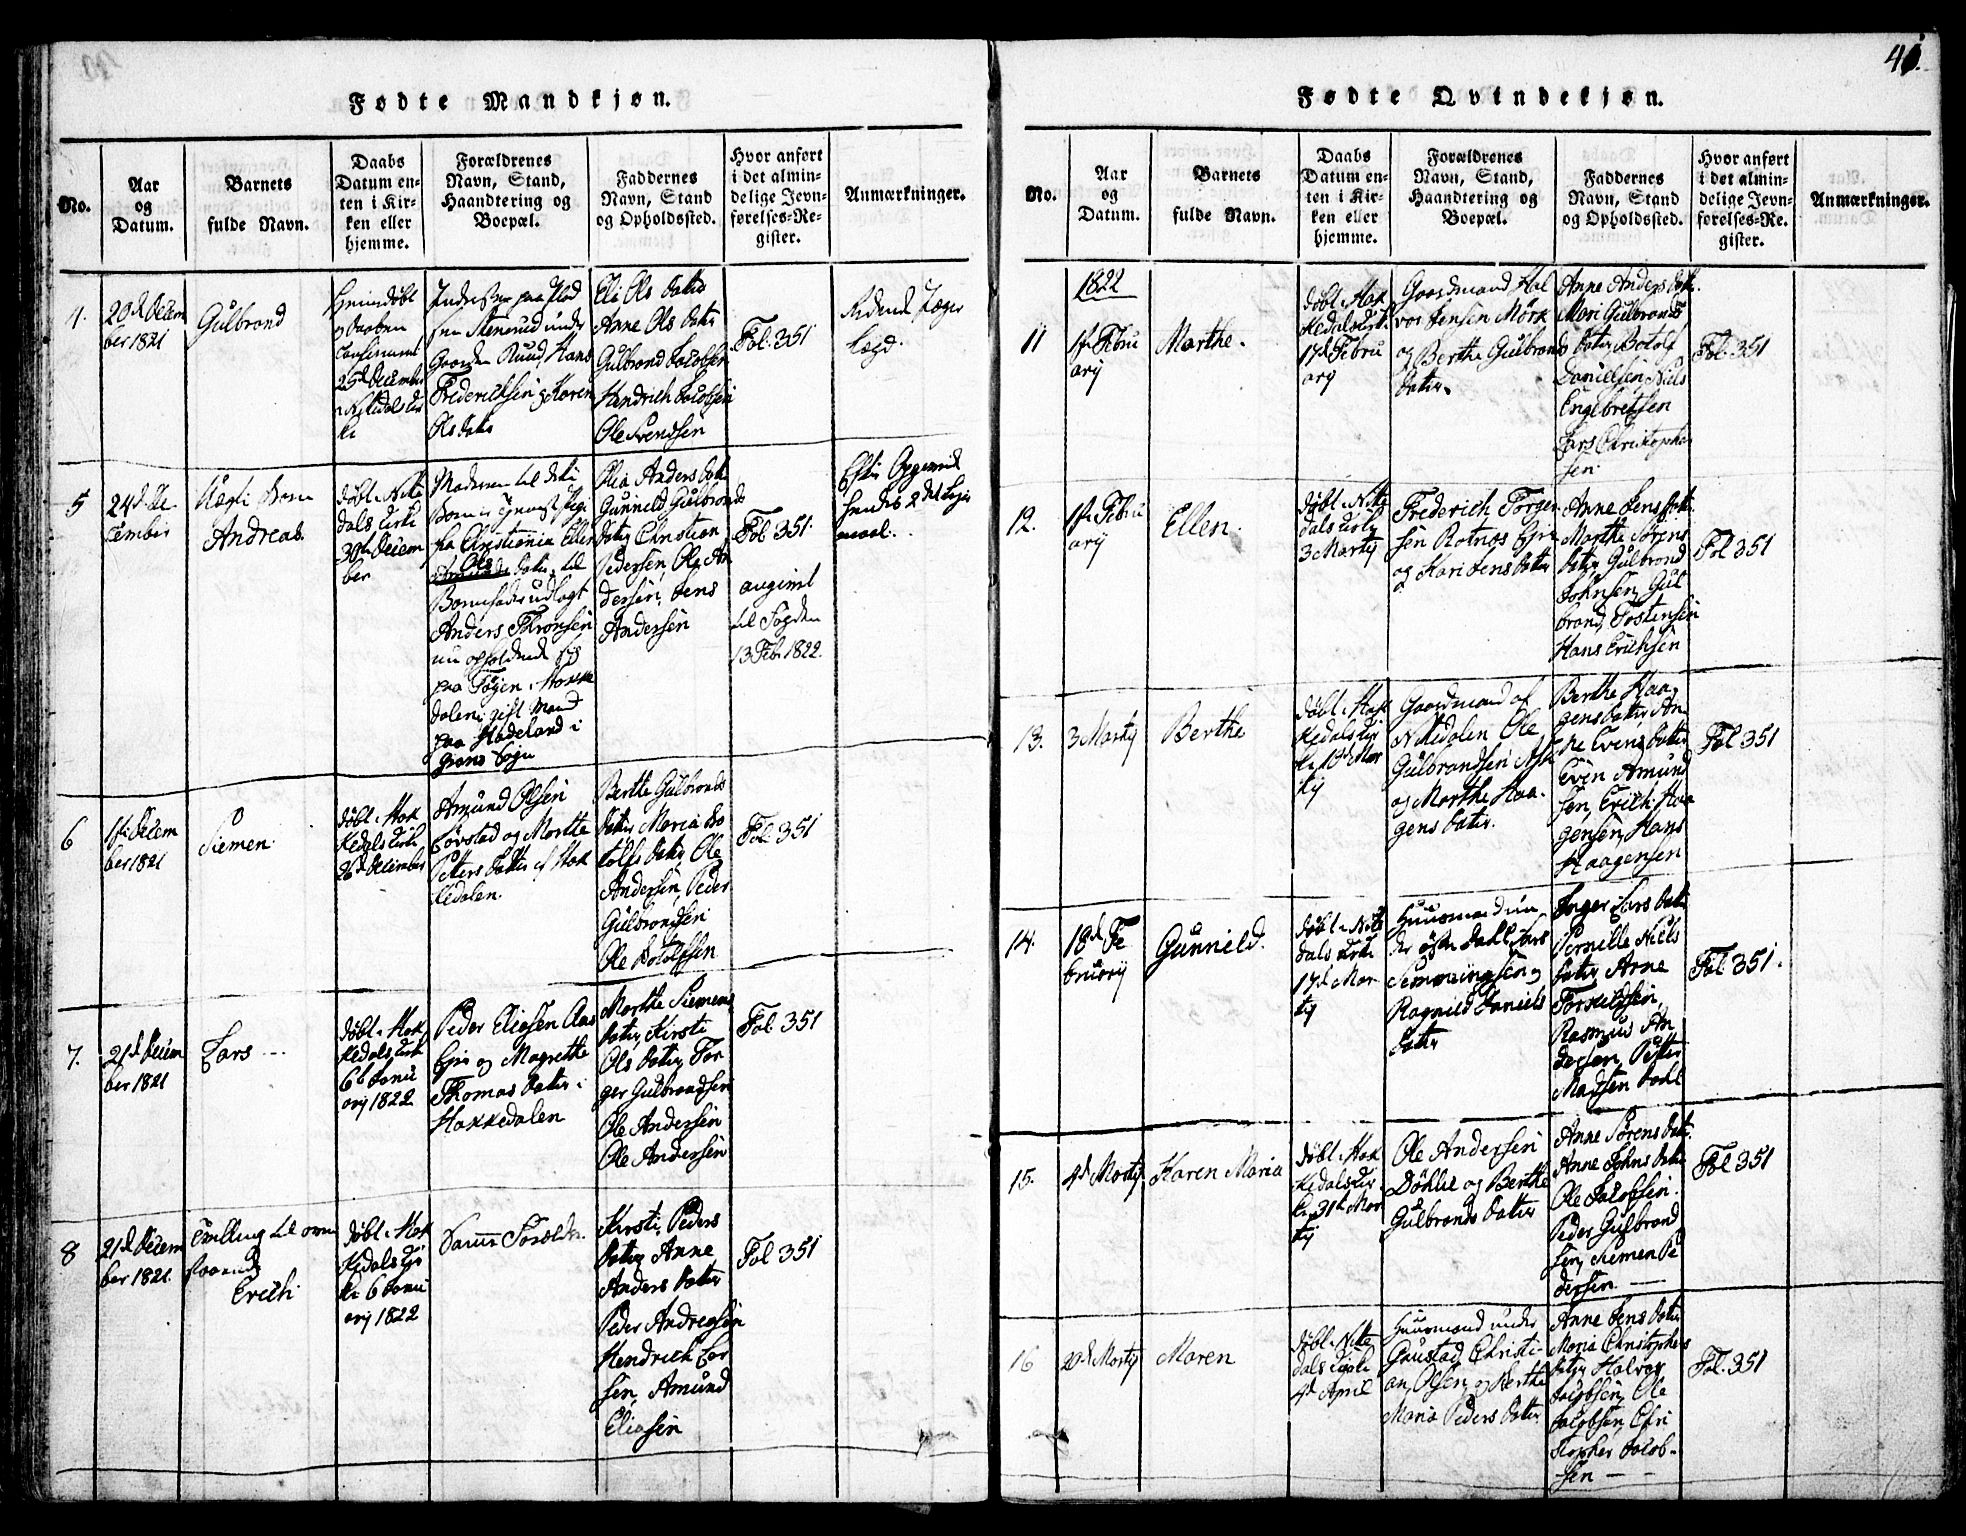 41.
Fødte Mandkjøn.
No.
Aar
og
Datum.
Barnets
fulde Navn.
Daabs
Datum en-
ten i Kir-
ken eller
hjemme.
Forældrenes
Navn, Stand,
Haandtering og
Boepæl.
Faddernes
Navn, Stand
og Opholdssted.
Hvor anført
i det almin-
delige Jevn-
førelses-Re-
gister.
Anmærkninger.
4.
20d Decem
ber 1821
Gulbrand
Hiemdøbt
25d December
Nitedals Kir
ke
Gaarden Ruud, Hans
Frederichsen og Karen
Ols datter
Eli Ols datter
Anne Ols datter
Gulbrand Jacobsen
Hendrich Jacobsen
Ole Svendsen
Fol. 351
5
24d De
cember
Uægte Barn
Andreas
døbt i Nite
dals Kirke
30te Decem
ber
Moderen til dette
fra Christiania Ellen
Ols datter, til
Barnefader udlagt
Anders Thronsen
nu opholdende sig
paa Søgen i Hakke
dalen gift Mand
paa Hadeland i
Grans Sogn
Olia Anders datter
Gunneld Gulbrands
datter Christian
Pedersen, Ole An
dersen, Jens
Andersen
Fol 351
angivet
til Fogden
13 Feb. 1822.
Efter Opgivende
hendes 2det Leier
maal.
6
1te Decem
ber 1821
Siemen.
døbt i Hak
kedals Kirke
26d December
Amund Olsen
Løvstad og Marthe
Petters datter af Hak
kedalen.
Berthe Gulbrands
datter Maria Bo
tolfs datter, Ole
Andersen, Peder
Gulbrandsen
Ole Botolfsen
Fol. 351
7.
21d Decem
ber 1821
Lars
døbt i Hak
kedals Kirke
6t Janu
arij 1822
Peder Eliasen Aas
Eje og Magrethe
Thomas datter i
Hakkedalen
Marthe Siemens
datter, Kirsti
Ols datter, Tor
ger Gulbrandsen
Ole Andersen
Ole Andersen
Fol 351
8
21d Decem
ber 1821.
Tvilling til oven
staaende
Erich
døbt i Hak
kedals Kir
ke 6 Janu
arij 1822
Samme Forældre.
Kirsti Peders
datter Anne
Anders datter
Peder Andreasen
Hendrich Lar
sen, Amund
Eliasen
Fol 351
Fødte Qvindekjøn.
No.
Aar
og
Datum.
Barnets
fulde Navn.
Daabs
Datum en-
ten i Kir-
ken eller
hjemme.
Forældrenes
Navn, Stand,
Haandtering og
Boepæl.
Faddernes
Navn, Stand
og Opholdssted.
Hvor anført
i det almin-
delige Jevn-
førelses-Re-
gister.
Anmærkninger.
1822
11
1te Febru
arij
Marthe.
døbt i Hak
kedals Kirke
17d Febru
arij
Gaardmand Hal
vor Jensen Mörk
og Berthe Gulbrands
datter.
Anne Anders datter
Mari Gulbrands
datter, Botolf
Danielsen, Niels
Engebretsen
Lars Christopher
sen.
Fol. 351
12.
1te Febru
arij
Ellen.
døbt i Nitte
dals Kirke
3 Martij
Frederich Torger
sen Rotnæs Eje
og Kari Jens datter
Anne Jens datter
Marthe Sörens
datter, Gulbrand
Johnsen, Gul
brand Tostensen
Hans Erichsen
Fol 351
13.
3 Martij
Berthe
døbt i Hak
kedals Kir
ke Mar
tij
Gaardmand af
Nittedalen Ole
Gulbrandsen
og Marthe Haa-
gens datter.
Berthe Haa
gens datter, An
ne Evens datter
Even Amund
sen, Erich Haa
gensen, Hans
Haagensen
Fol 351
14.
18d Fe
bruarij
Gunnild.
døbt i Nite
dals Kirke
17d Mar
tij
Huusmand un
der østre Dahl Lars
Simmingsen og
Ragnild Daniels
datter
Inger Lars datter
Pernille Niels
datter Arne
Torkildsen,
Rasmus An
dersen, Petter
Madsen Dahl
Fol 351.
15.
4d Martij
Karen Maria
døbt i Hak
kedals Kir
ke 31te Mar
tij
Ole Andersen
Döhlie og Berthe
Gulbrands datter
Anne Sörens datter
Anne Johns datter
Ole Jacobsen.
Peder Gulbrand
sen, Siemen Pe
dersen
Fol 351
16
20d Martij
Maren
døbt i Nitte
dals Kirke
4d April
Huusmand under
Gaustad Christi-
an Olsen, og Berthe
Maria Peders datter
Anne Jens datter
Maria Christophers
datter Halvor
Jacobsen, Ole
Jacobsen, Chri
stopher Jacob-
sen
Fol. 351